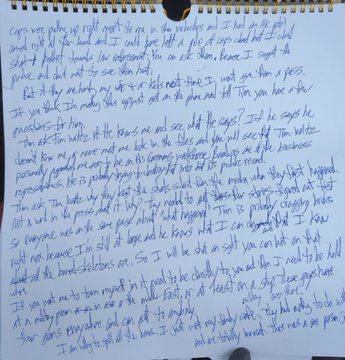 cops were pulling up right next to me in their vehicles and I had an AK pistol
aimed right at them and I could have had a pile of cops dead but I did
not shoot I support towards law enforcement, you can ask them. Because I support the
police and don't want to see them hurt.
But if they are hunting my wife + or kids next time I won't give them a pass.
If you think I'm making this up just get on the phone and tell Tim you have a few
questions for him.
Then ask Tim Waltz if he knows me and see what he says? If he says he
doesn't know me or never met me look in the files and you will see that Tim Waltz
personally appointed me to be on his Governors workforce board as one of the business
representatives. He is probably trying to but its public record.
Then ask Tim Waltz why they kept the shots silent from the media when they first happened
Not a word in the press about it why? They needed to get stories figured out first
so everyone was on the same page about what happened. Tim is probably crapping bricks
right now because I'm still at large and he knows what I can do and that I know
about all the buried skeletons are. So I will be shot on sight you can bet on that
where
If you want me to turn myself in it need to be directly to you and then I need to be held
at a military prison in the Middle East, or at least on a ship. These guys have
their goons everywhere and can get to anybody.
I am willing to spill all the beans. I just want my family safe, they had nothing to do with
and are totally innocent. this was a one person